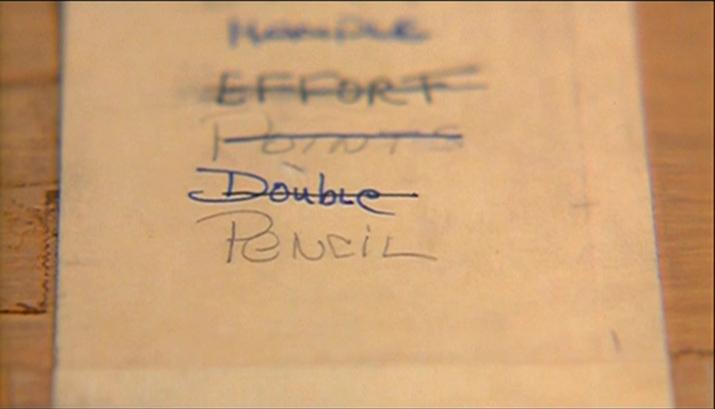 EFFORT
POINTS
Double
PENCIL